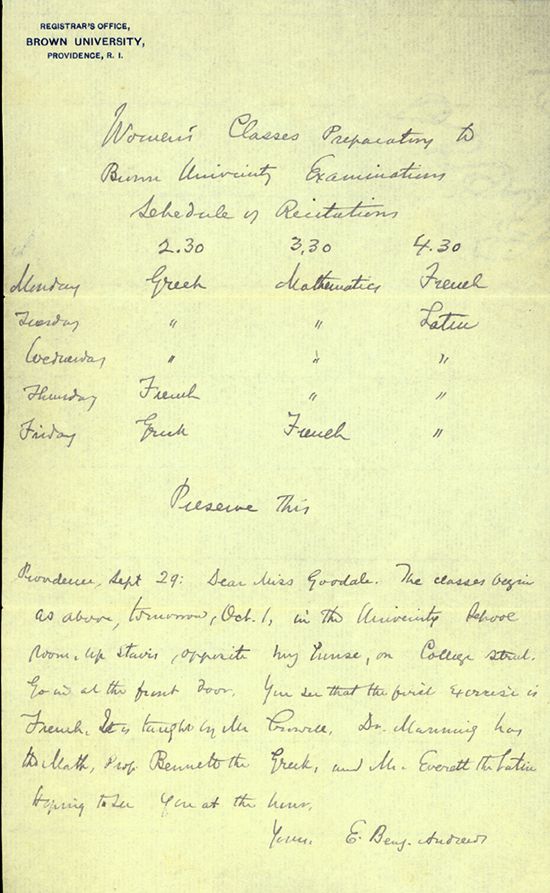 REGISTRAR'S OFFICE,
BROWN UNIVERSITY,
PROVIDENCE, R. I.
Women's Classes Preparatory to
Brown University Examinations
Schedule of Recitations
2.30 3.30 4.30
Monday Greek Mathematics French
Tuesday " " Latin
Wednesday " " "
Thursday French " "
Friday Greek French "
Preserve This
Providence, Sept 29: Dear Miss Goodale. The classes begin
as above, tomorrow, Oct. 1, in the University School
room, up stairs, opposite my house, on College street.
Go in at the front door. You see that the first exercise is
French. It is taught by Mr Crowell. Dr. Manning has
the Math, Prof. Bennett the Greek, and Mr. Everett the Latin
Hoping to see you at the hour,
Yours, E. Benj. Andrews